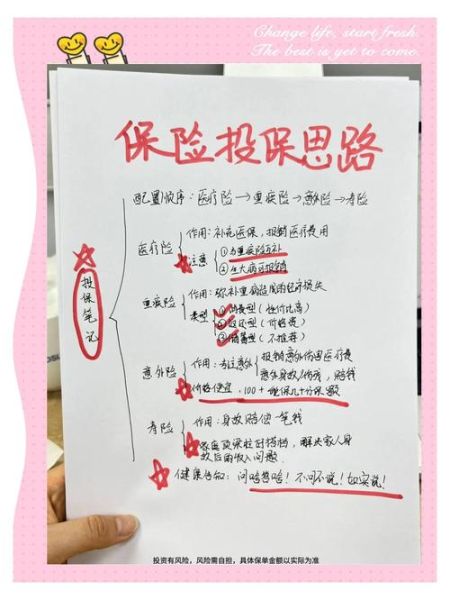 Change life, start fresh.
The best is yet to come.
保险投保思路
配置顺序：医疗险→重疾险→意外险→寿险
投保笔记
医疗险
作用：补充医保，报销医疗费用
注意
①与重疾险互补
②生大病可报销
重疾险
作用：弥补重病造成的经济损失
类型
①消费型（性价比高）
②返还型（价格贵）
③储蓄型（不推荐）
意外险
作用：专注意外
报销意外伤害医疗费
意外身故/伤残，赔钱
价格便宜，100+能保几十万保额
寿险
作用：身故赔偿一笔钱
家庭顶梁柱配措档，解决家人身
故后的收入问题.
健康告知：问啥答啥！不问不说！如实说！
投资有风险，风险需自担，具体保单金额以实际为准